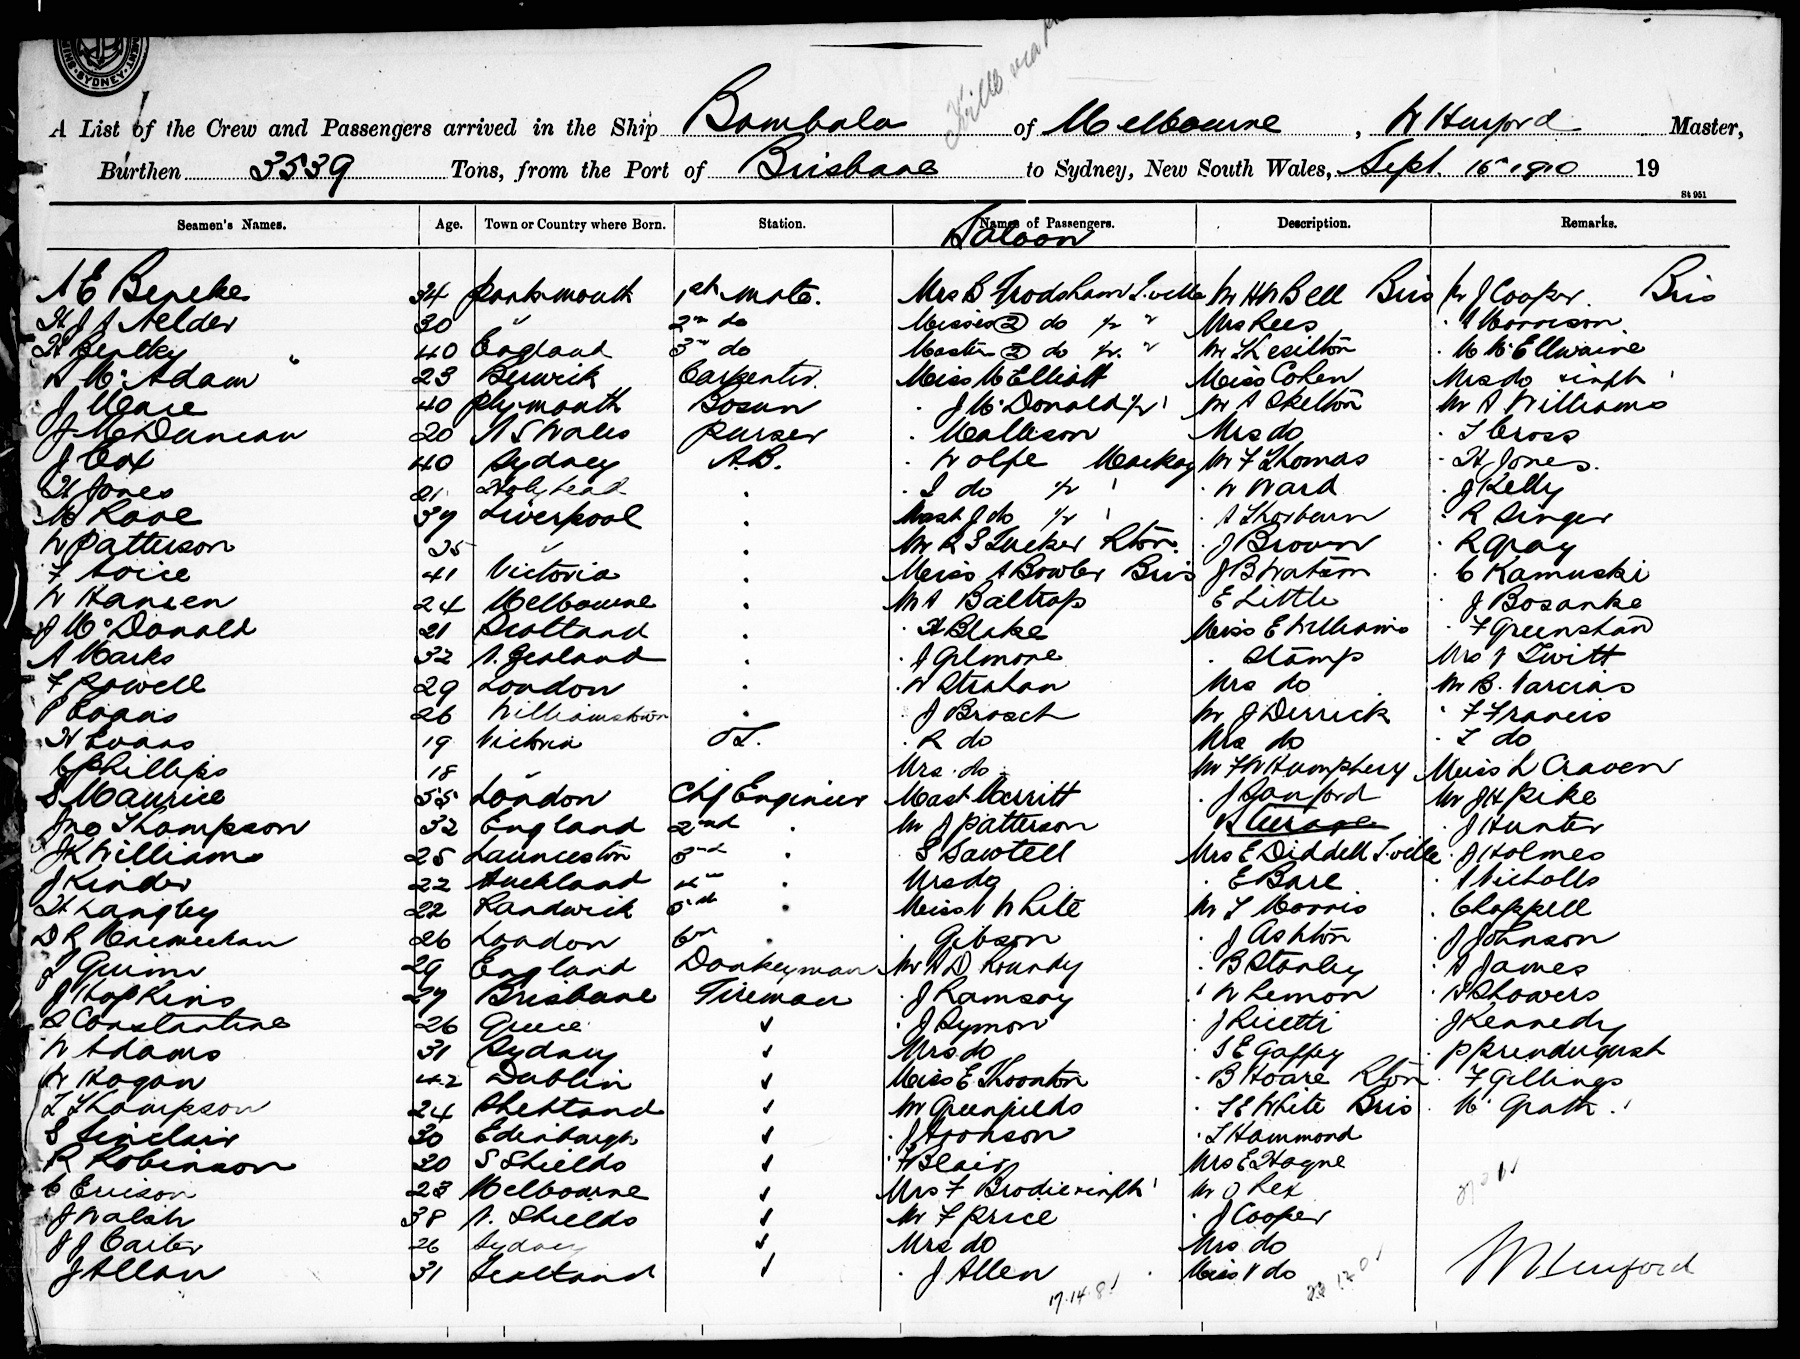 SYDNEY
A List of the Crew and Passengers arrived in the Ship Bombala of Melbourne, W Hurford Master,
Burthen 3539 Tons, from the Port of Brisbane to Sydney, New South Wales, Sept. 16th 1910 19
St 951
Seamen's Names. Age. Town or Country where Born. Station. Names of Passengers. Description. Remarks.
Saloon
A E Beneke 34 Portsmouth 1st mate. Mrs B Frodsham T.ville Mr H W Bell Bris Mr J Cooper. Bris
H J J Nelder 30 " 2nd do Misses 2 do Mrs Rees A Morrison
H 40 England 3rd do Master 2 do Mr T Mc Ellwaine
A Mc Adam 23 Berwick Carpenter. Miss M Elliott Miss Cohen Mrs do & infth
J Mare 40 Plymouth Bosun J Mc Donald Mr A Skelton Mr A Williams
J McDuncan 20 N S Wales Purser Mallison Mrs do T Cross
J Cox 40 Sydney A.B. Wolfe Mackay Mr F Thomas H Jones.
H Jones 21 Holyhead I do W Ward J Kelly
M Rave 37 Liverpool Mast J do A Thorburn R Singer
W Patterson 25 " Mr R S Tucker Rton. J Brown R Gray
F Voice 41 Victoria Miss A Bowler Bris J B Watson C Kamuski
W Hansen 24 Melbourne Mr A Baltrop E Little J Bosanke
J Mc Donald 21 Scotland H Blake Miss E Williams F Greenshan
A Marks 32 N. Zealand J Gilmore Stamp Mrs A Twitt
F Powell 29 London W Strahan Mrs do Mr B. Varcias
P Evans 26 Williamstown J Brosch Mr J Derrick F Francis
H Evans 19 Victoria O S. R do Mrs do T do
C Phillips 18 " Mrs. do Mr F W Humphery Miss L Craven
S Maurice 55 London Chf Engineer Mast Merritt J Sanford Mr J H Pike
Jno Thompson 32 England 2nd Mr J Patterson Steerage J Hunter
J K Williams 25 Launceston 3rd S Sawtell Mrs E Diddell T.ville J Holmes
J Kinder 22 Auckland 4th Mrs do E Bare A Nicholls
H Langley 22 Randwick 5th Miss V White Mr T Morris Chappell
D R Macmeekan 26 London 6th Gibson J Ashton J Johnson
J Quinn 29 England Donkeyman Mr A D Roundy B Stanley A James
J Hopkins 27 Brisbane Fireman J Ramsay W Lemon W Showers
S Constantine 26 Greece J Symon J Ricetti J Kennedy
W Adams 31 Sydney Mrs do S E Gaffey P Prendergast
W Hogan 42 Dublin Miss E Thornton B Hoare Rton F Gillings
T Thompson 24 Shetland Mr Greenfields T E White Bris Mc Grath
S Sinclair 30 Edinburgh J Aronson T Hammond
R Robinson 20 S Shields F Blair Mrs E Hayne
C Ericson 23 Melbourne Mrs F Brodie & infth Mr O Rex
J Walsh 38 N. Shields Mr F Price J Cooper
J J Carter 26 Sydney Mrs do Mrs do
J Allan 31 Scotland J Allen Miss V do
17.14.8
W Hurford